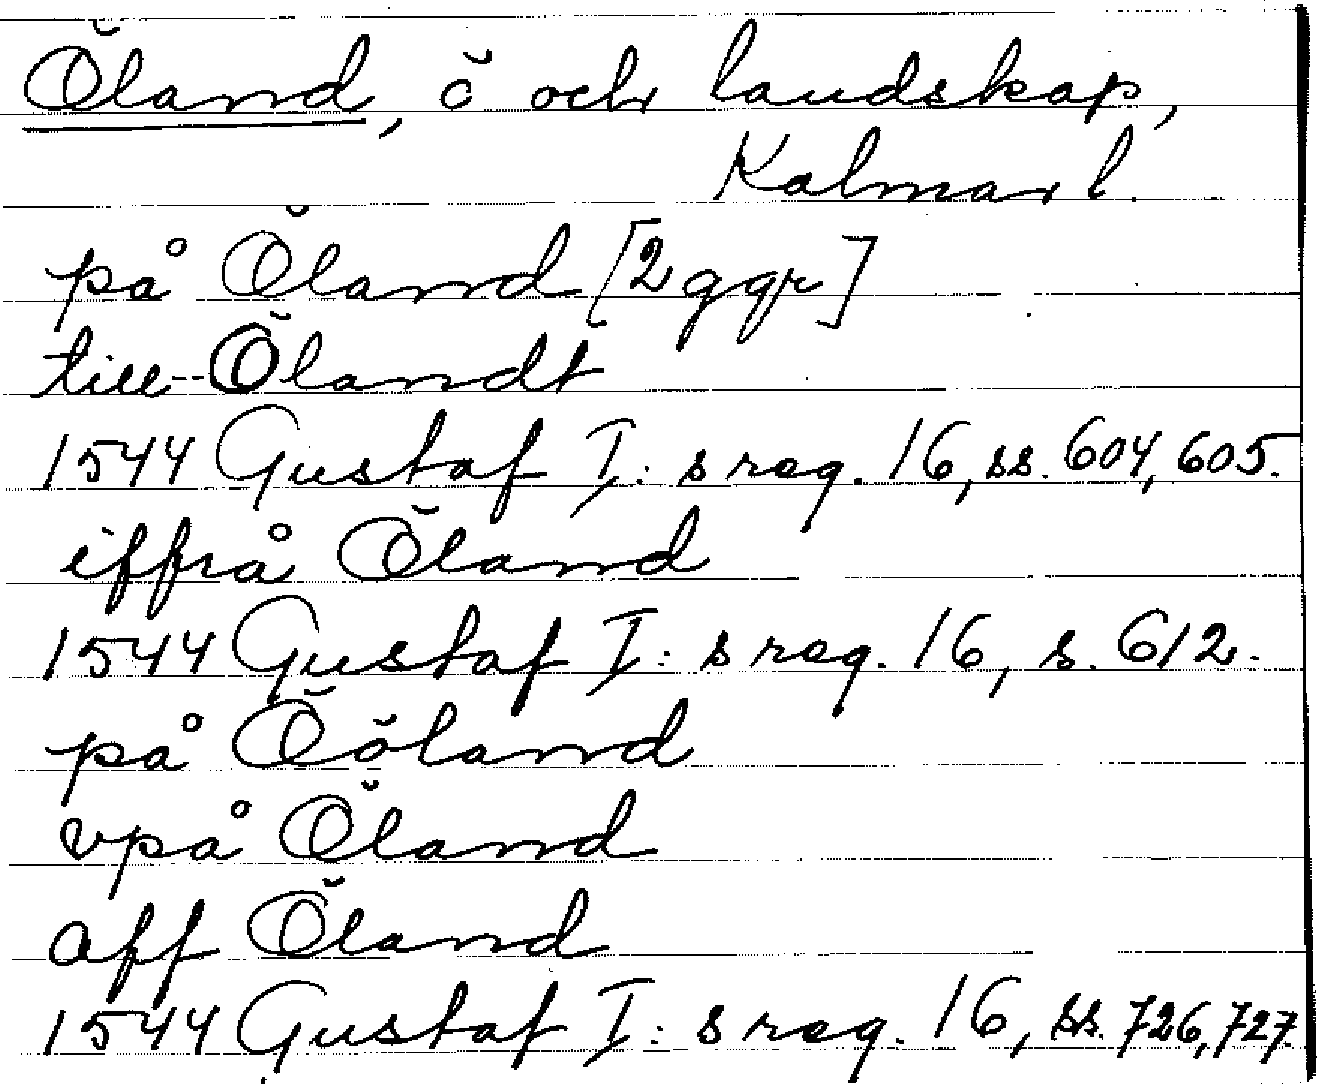 Öland, ö och landskap,
Kalmar l.
på Öland [2 ggr]
till Ölandt
1544 Gustaf I: s reg. 16, ss. 604, 605.
iffrå Öland
1544 Gustaf I: s reg. 16, s. 612.
på Öőland
vpå Öland
aff Öland
1544 Gustaf I: s reg. 16, ss. 726, 727.